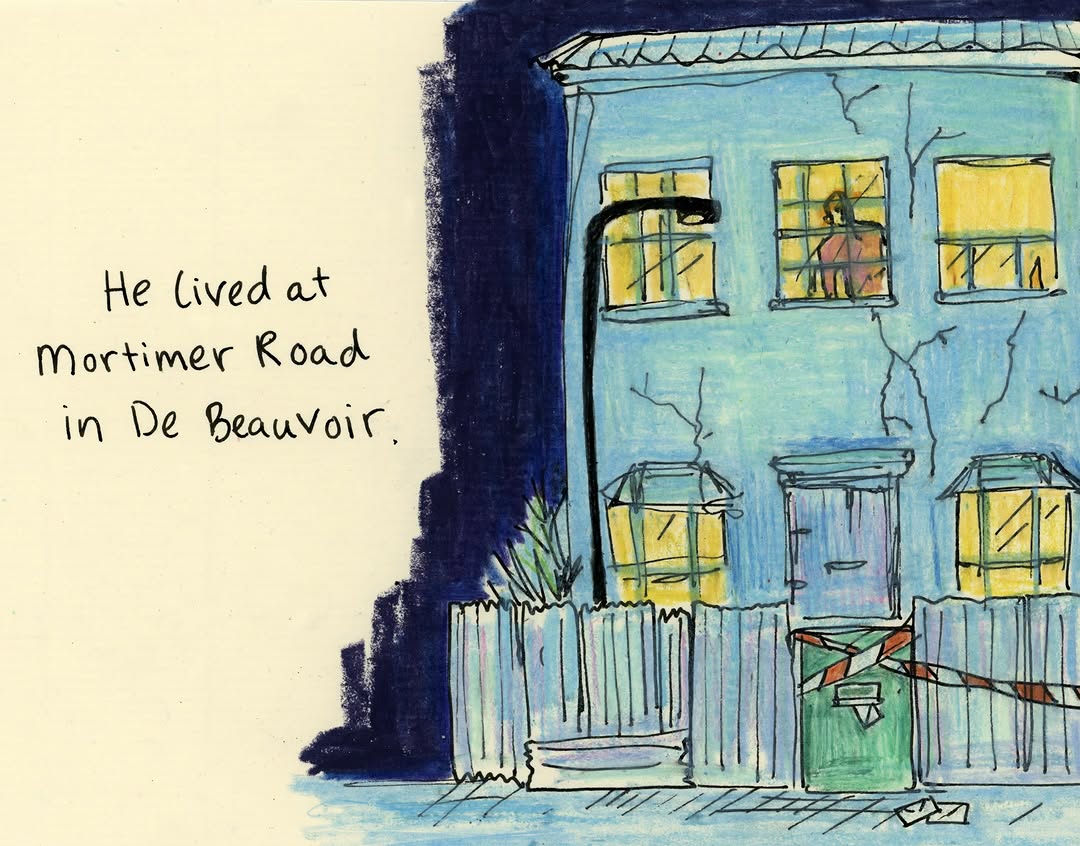 He lived at
Mortimer Road
in De Beauvoir.